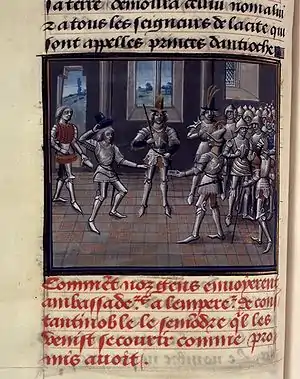 sa terre demoura a celui nom a lui
z a tous les seigneurs de la cite qui
sont appelles princes dantioche
Comment noz gens enuoyerent
ambassade'rs a lempere'r de con
stantinoble le semo᷑dre q'l les
venist secourir comme pro
mis auoit